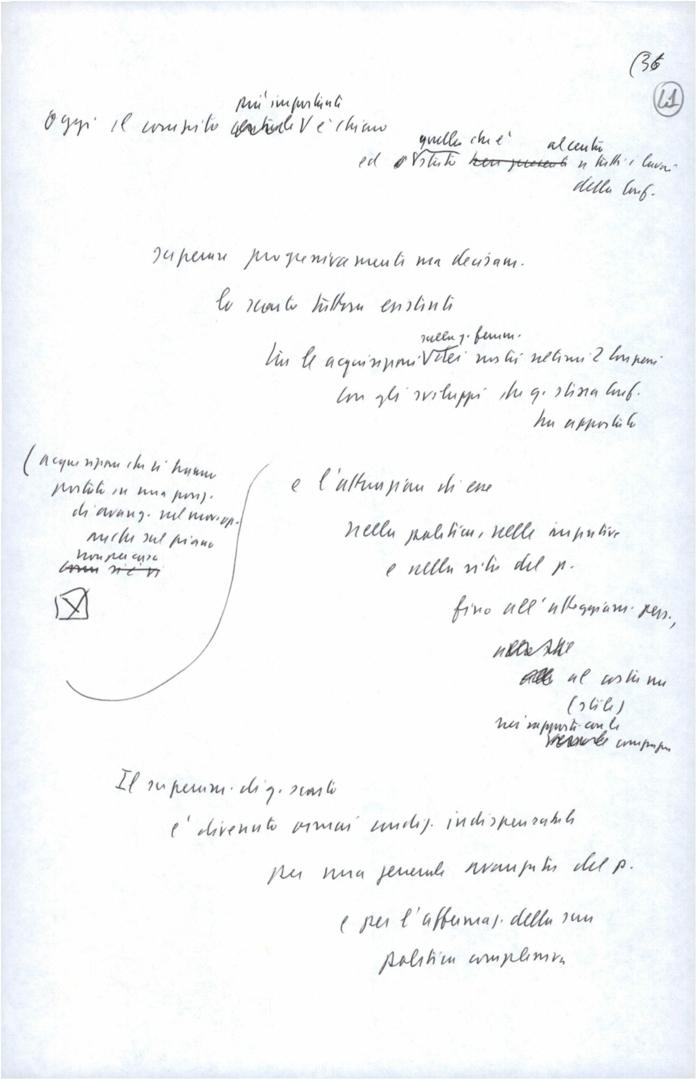 (36
41
più importante
Oggi il compito è chiaro
quello che è al centro
ed è stato ben presente in tutti i lavori
della Conf.
superare progressivamente ma decisam.
lo scarto tuttora esistente
sulla q. femm.
tra le acquisizioni dei nostri ultimi 2 Congressi
con gli sviluppi che q. stessa Conf.
ha apportato
(acquisizioni che ci hanno
portato in una posiz.
di avang. nel mov. op.
anche sul piano
non per caso
e l'attuazione di esse
nella politica, nelle iniziative
e nella vita del p.
fino all'atteggiam. pers.,
al costume
(stile)
nei rapporti con le
compagne
Il superam. di q. scarto
è divenuto ormai condiz. indispensabile
per una generale avanzata del p.
e per l'affermaz. della sua
politica complessiva